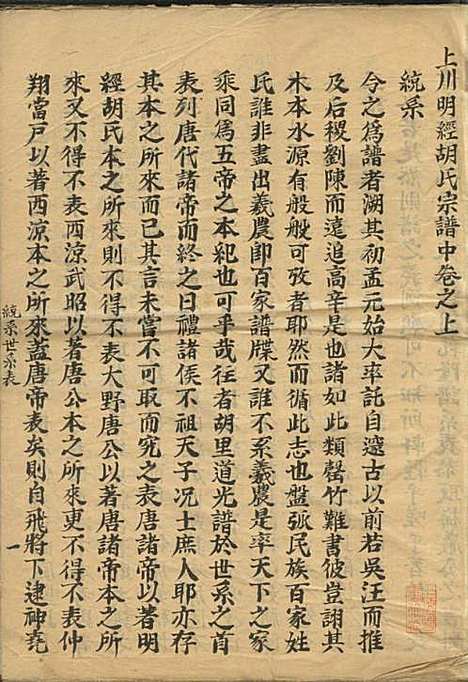 上川明經胡氏宗譜中卷之上
統系
今之為譜者溯其初孟元始大率託自邃古以前若吳汪而推
及后稷劉陳而遠追高辛是也諸如此類罄竹難書彼豈詡其
木本水源有般般可攷者耶然而循此志也盤弧民族百家姓
氏誰非盡出羲農即百家譜牒又誰不系羲農是率天下之家
乘同為五帝之本紀也可乎哉往者胡里道光譜於世系之首
表列唐代諸帝而終之曰禮諸侯不祖天子况士庶人耶亦存
其本之所來而已其言未嘗不可取而究之表唐諸帝以著明
經胡氏本之所來則不得不表大野唐公以著唐諸帝本之所
來又不得不表西涼武昭以著唐公本之所來更不得不表仲
翔當戶以著西涼本之所來蓋唐帝表矣則自飛將下逮神堯
統系世系表
一